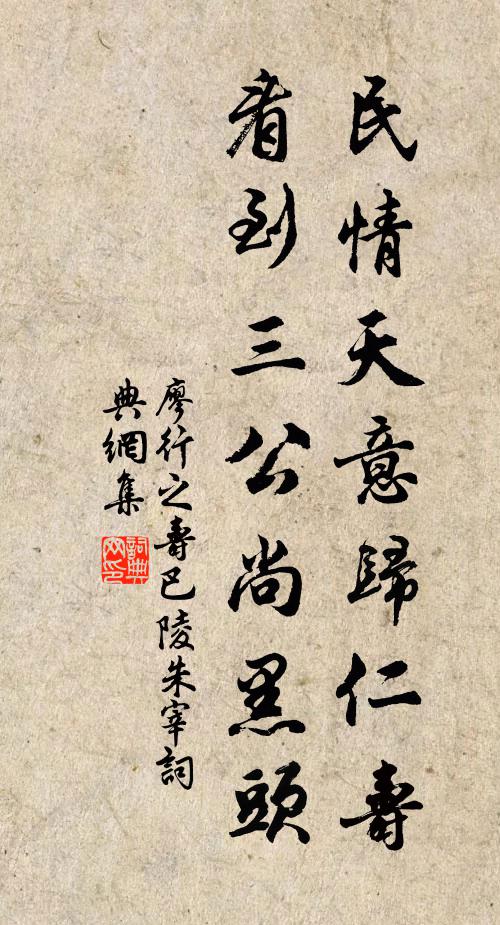 民情天意歸仁壽
看到三公尚黑頭
廖行之壽巴陵朱宰詞
典網集
詞典網印